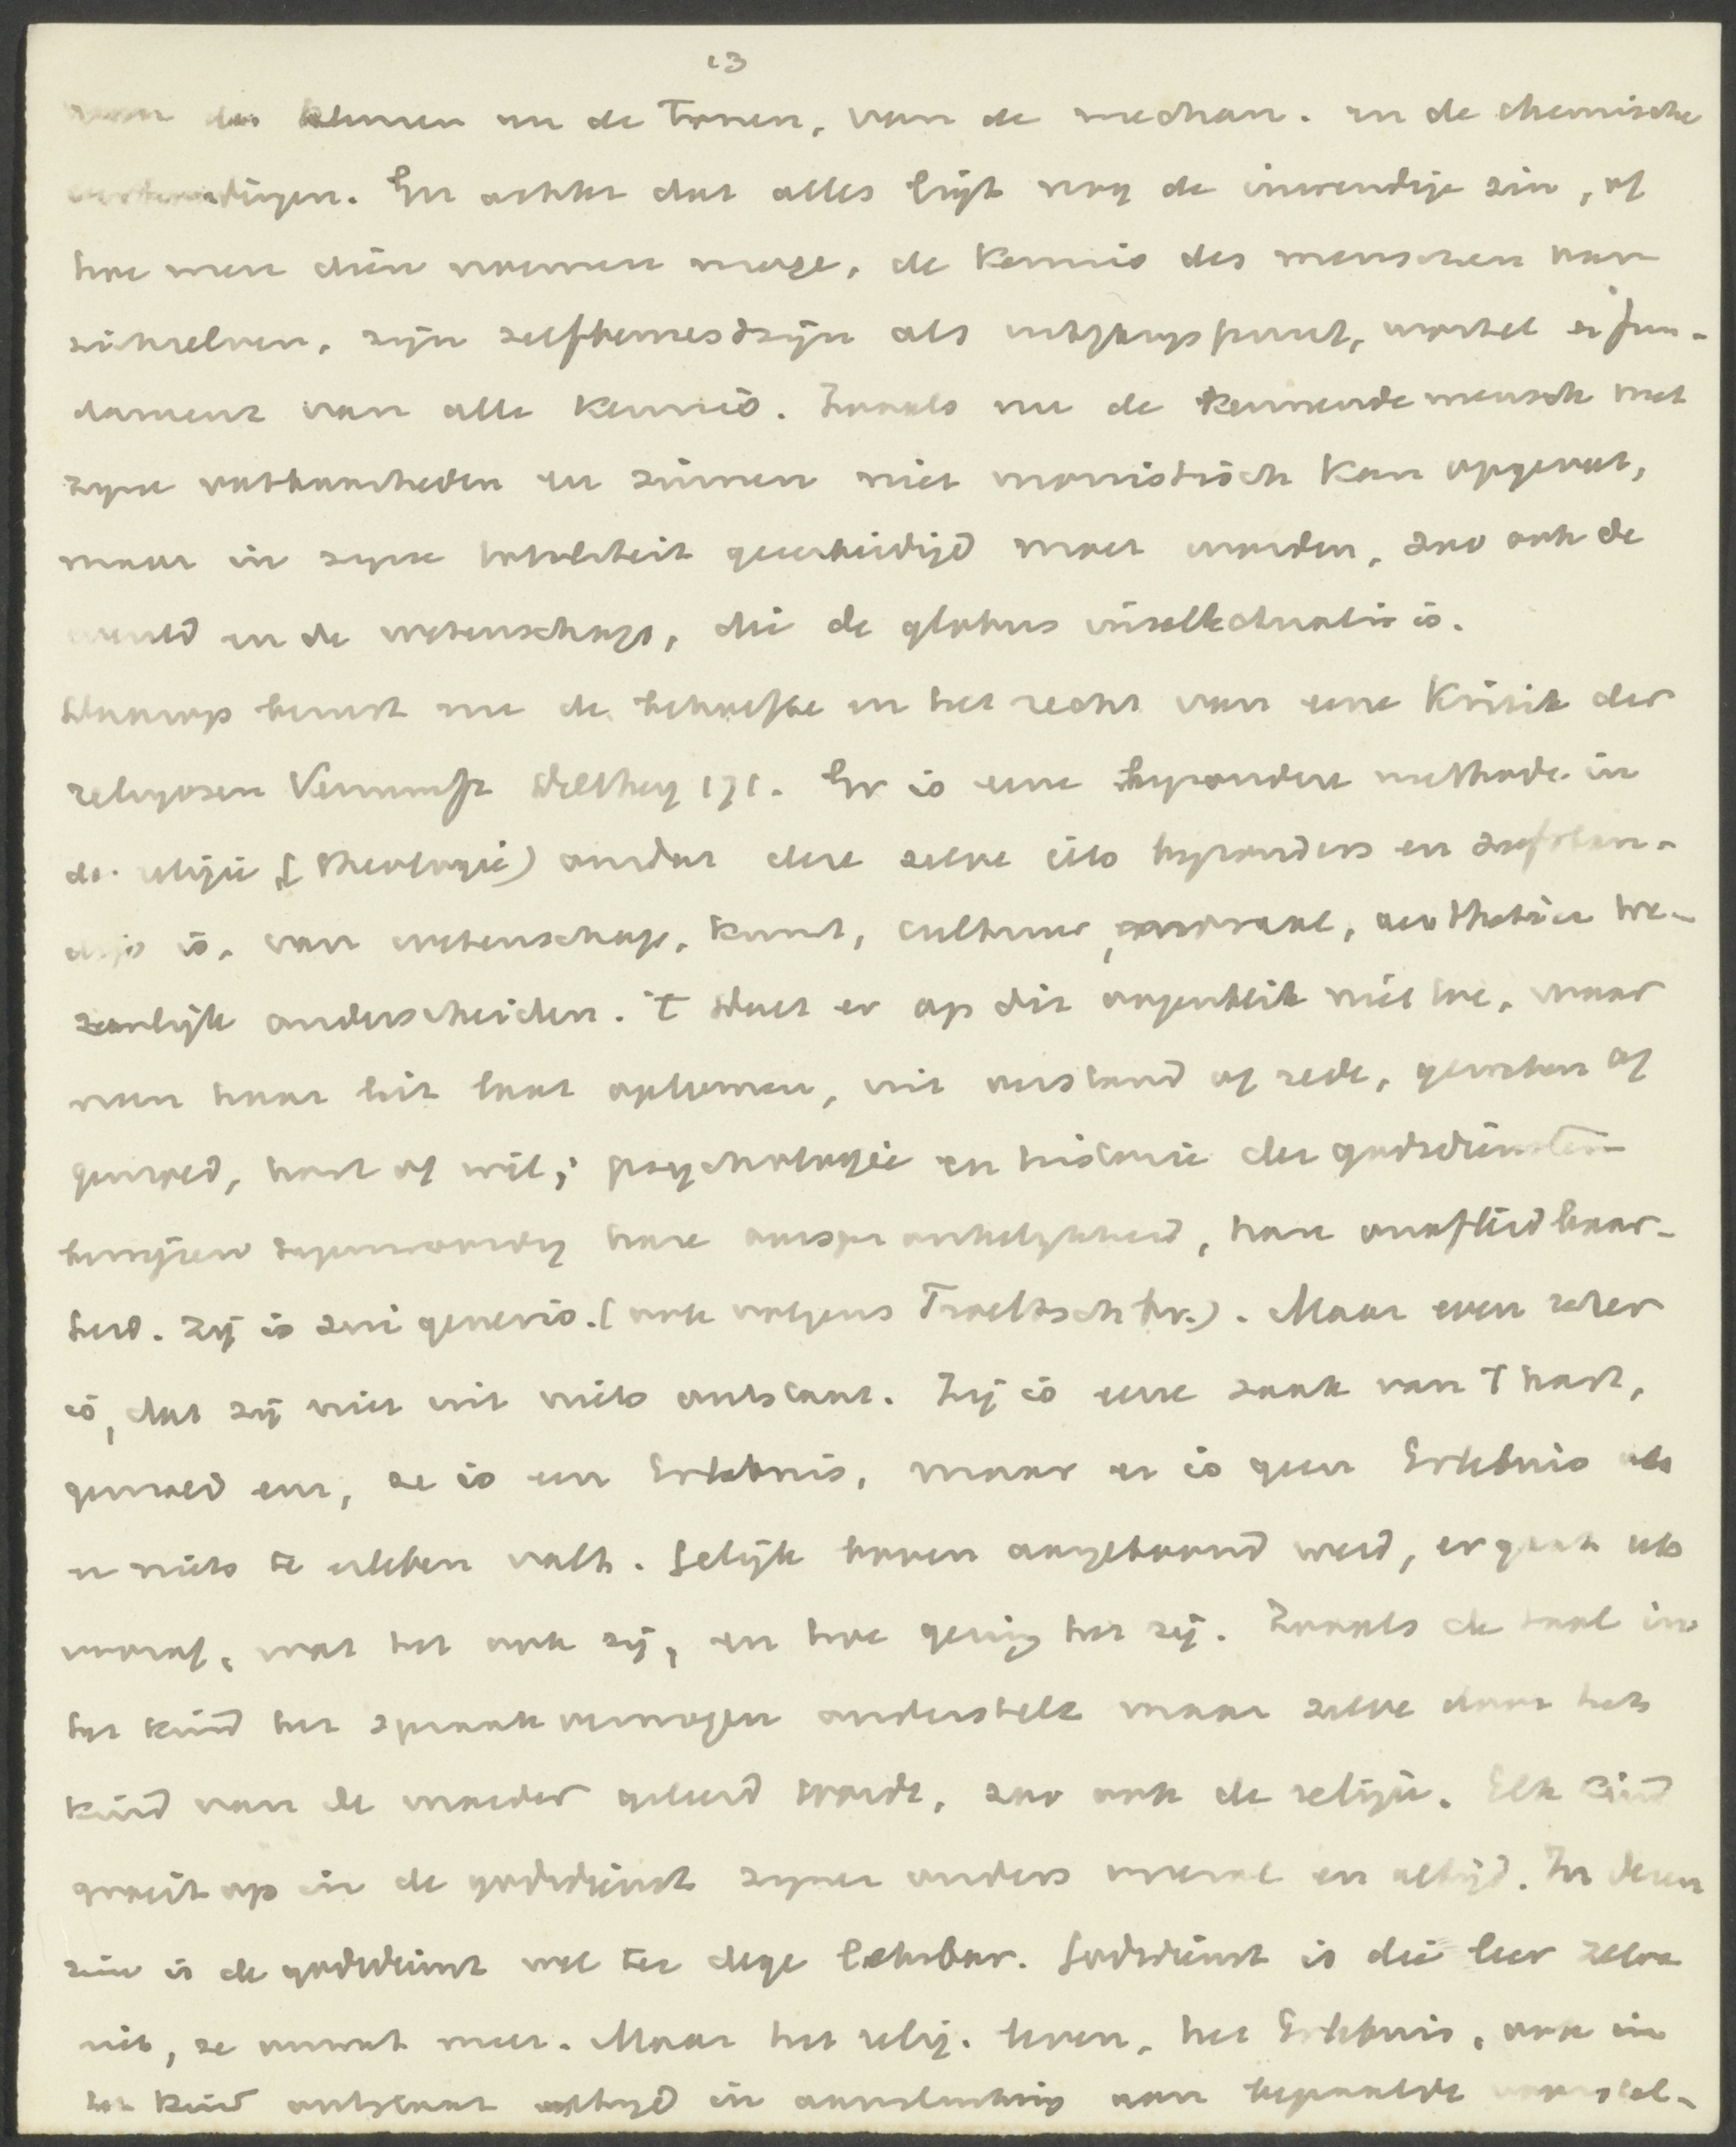 13
van de kleuren en de Tonen, van de mechan. en de chemische
werkingen. En achter dat alles ligt nog de inwendige zin, of
hoe men dien noemen moge, de kennis des menschen van
zichzelven, zijn zelfbewustzijn als uitgangspunt, wortel en fun-
dament van alle kennis. Zooals nu de kennende mensch met
zyne vatbaarheden en zinnen niet monistisch kan opgevat,
maar in zyne totaliteit geeerbiedigd moet worden, zoo ook de
wereld en de wetenschap, die de globus intellectualis is.
Daarop berust nu de behoefte en het recht van eene Kritik der
religiosen Vernunft Dilthey 171. Er is eene byzondere methode in
de religie (Theologie) omdat deze zelve iets byzonders en zelfstan-
digs is, van wetenschap, kunst, cultuur, moraal, aesthetiek we-
zenlijk onderscheiden. 't Doet er op dit oogenblik niet toe, waar
men haar uit laat opkomen, uit verstand of rede, geweten of
gemoed, hart of wil; psychologie en historie der godsdiensten
bewijzen tegenwoordig hare oorspronkelykheid, hare onafleidbaar-
heid. Zij is sui generis. (ook volgens Troeltsch hv.). Maar even zeker
is, dat zij niet uit niets ontstaat. Zij is eene zaak van 't hart,
gemoed enz, ze is een Erlebnis, maar er is geen Erlebnis als
er niets te erleben valt. Gelijk boven aangetoond werd, er gaat iets
vooraf, wat het ook zij, en hoe gering het zij. Zooals de taal in
het kind het spraakvermogen onderstelt maar zelve door het
kind van de moeder geleerd wordt, zoo ook de religie. Elk kind
groeit op in de godsdienst zyner ouders overal en altijd. In dezen
zin is de godsdienst wel ter dege lehrbar. Godsdienst is die leer zelve
niet, ze omvat meer. Maar het relig. leven, het Erlebnis, ook in
het kind ontstaat altyd in aansluiting aan bepaalde voorstel-